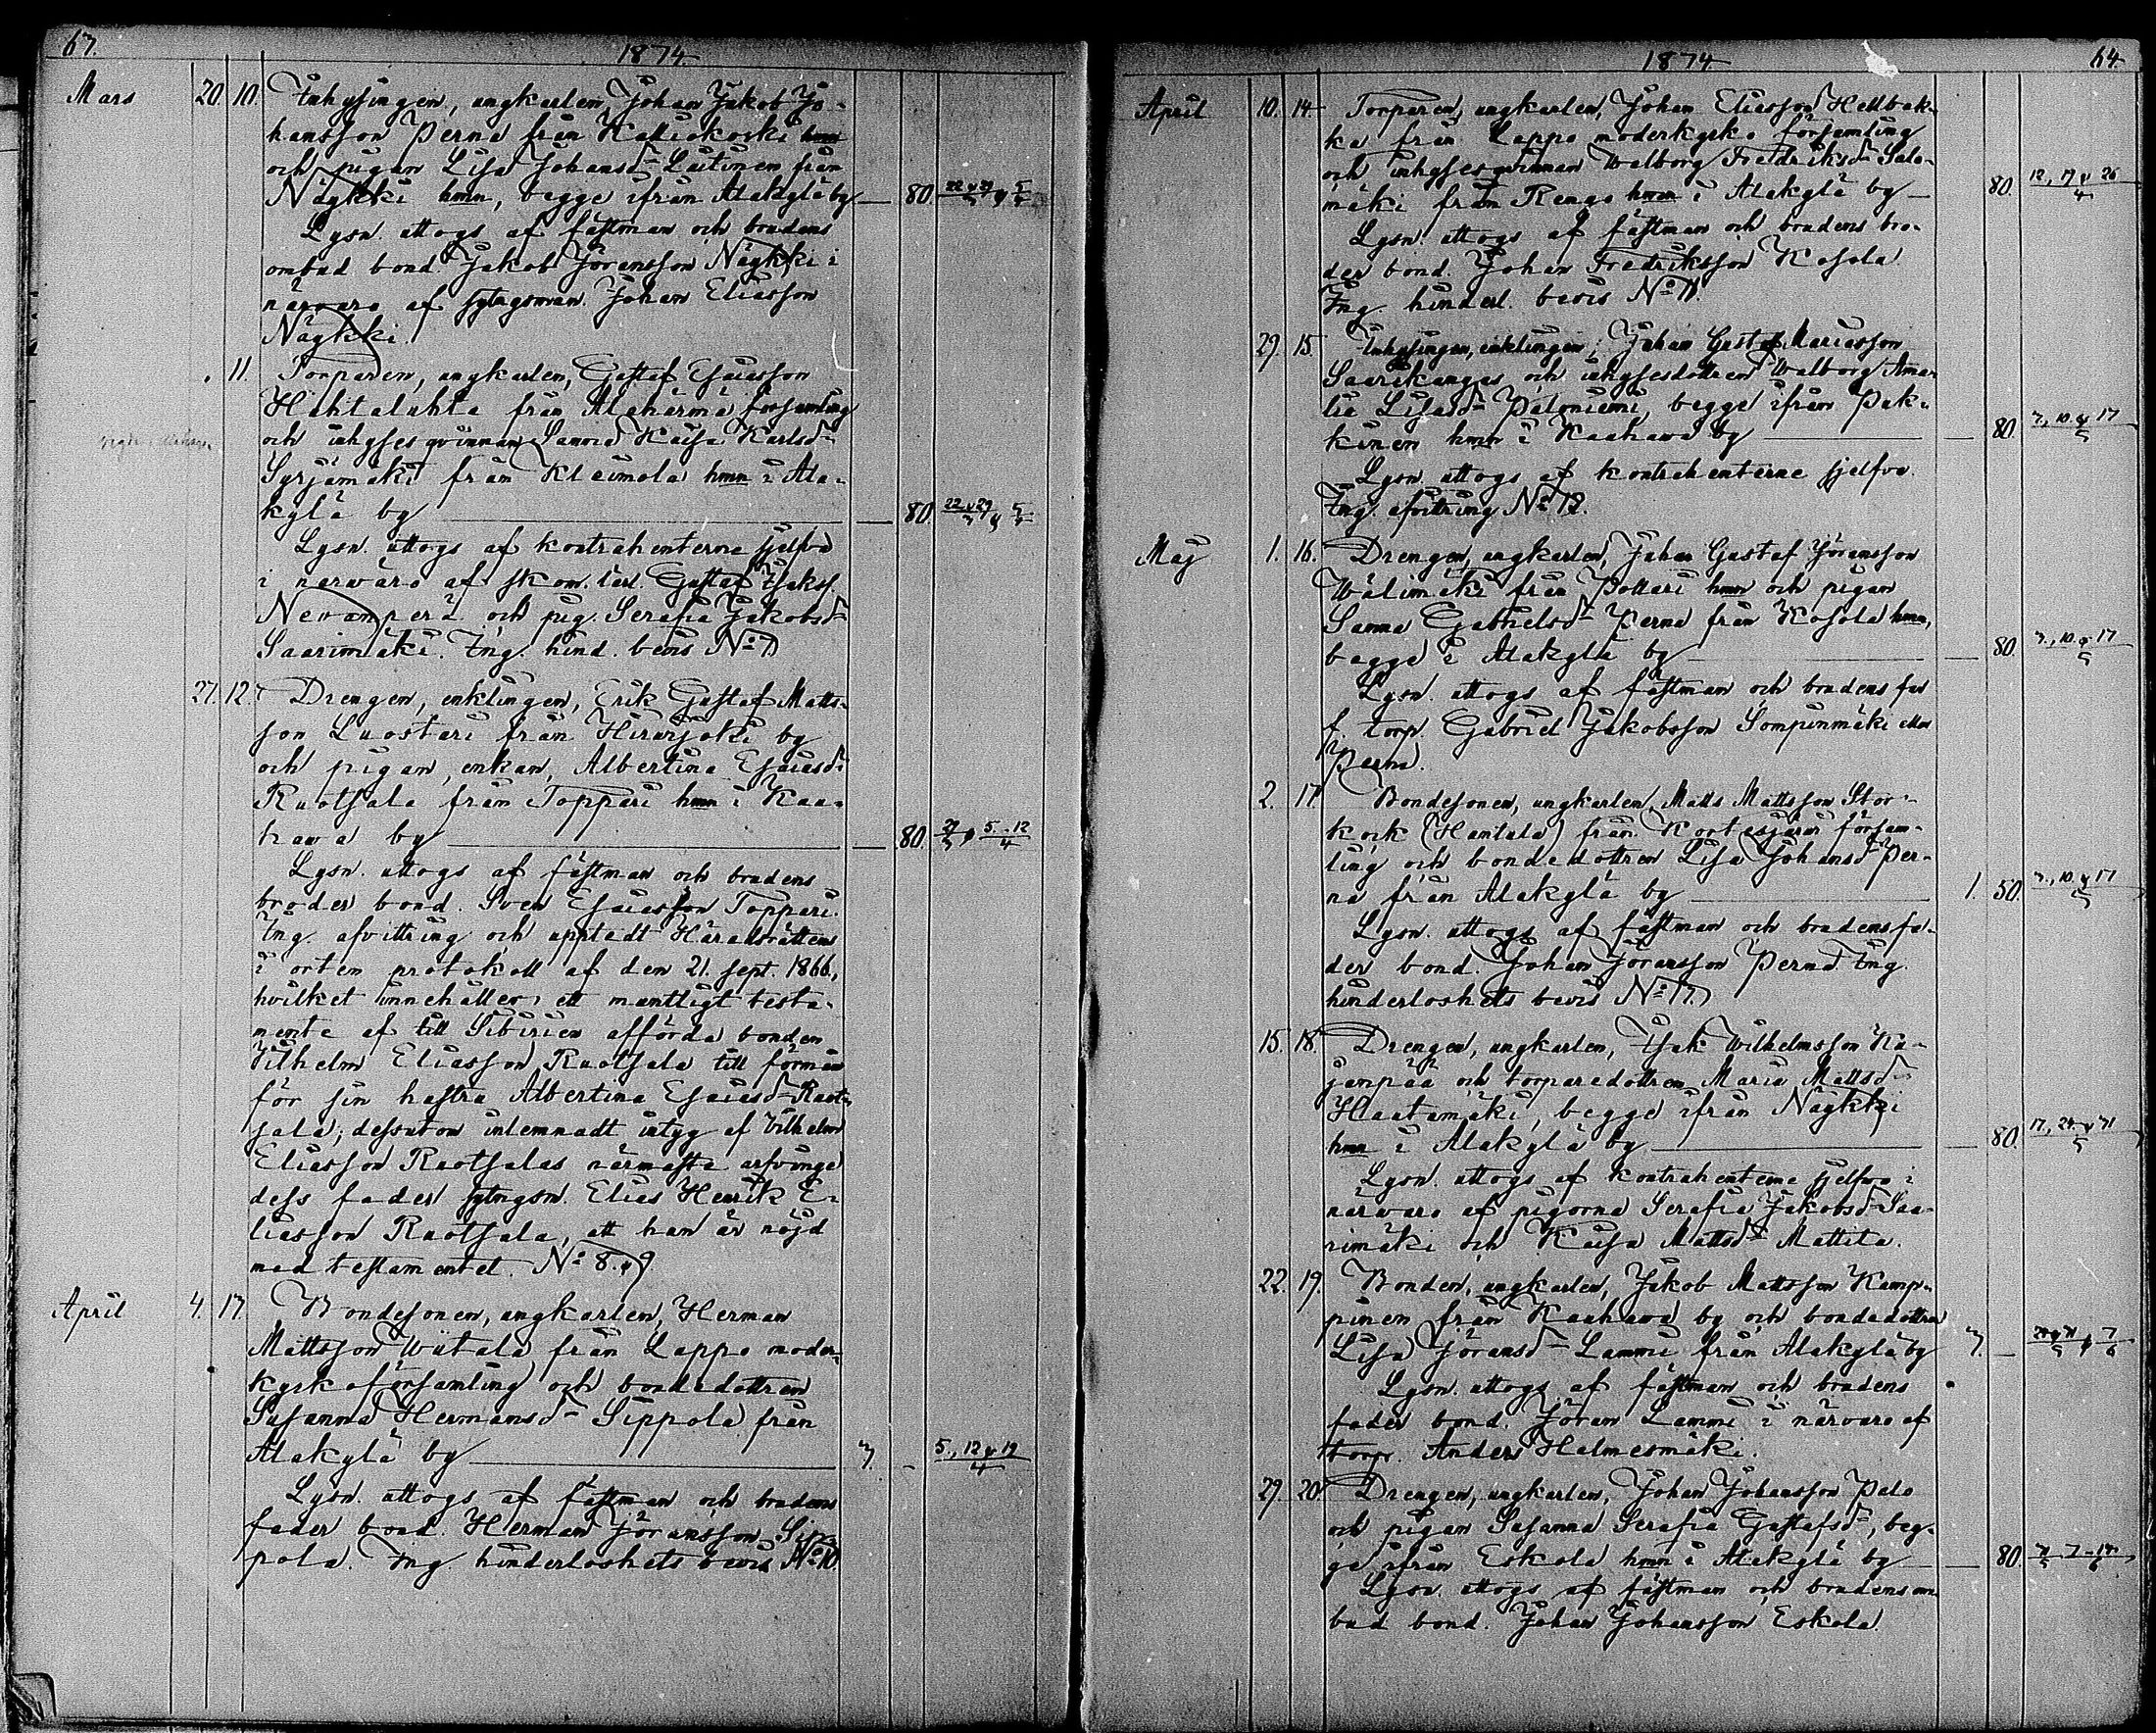 63.
1874
Mars 20. 10. Inhysingen, ungkarlen, Johan Jakob Jo-
hansson Perna från Kalliokoski hmn
och pigan Lisa Johansd:r Lautinen från
Näykki hmn, begge ifrån Alakylä by — 80. 22 o 29/3 o 5/4
Lysn. uttogs af fästman och brudens
ombud bond. Jakob Jöransson Näykki i
närvaro af sytngsman. Johan Eliasson
Näykki.
11. Torparen, ungkarlen, Gustaf Esaiasson
Huhtaluhta från Alahärmä församling
och inhyses qvinnan Sanna Kaisa Karlsd:r
Syrjämäki från Kleimola hmn i Ala-
kylä by — 80. 22 o 29/3 o 5/4
Lysn. uttogs af kontrahenterna sjelfva
i närvaro af skom. lärl. Gustaf Isaksf.
Nevanperä och pig. Serafia Jakobsd:r
Saarimäki. Ing. hind. bevis N:o 7
27. 12. Drengen, enklingen, Erik Gustaf Matts-
son Luostari från Hirvijoki by
och pigan, enkan, Albertina Esaiasd:r
Ruotsala från Toppari hmn i Kau-
hava by — 80. 29/3 o 5. 12/4
Lysn. uttogs af fästman och brudens
broder bond. Sven Esaiasson Toppari.
Ing. afvittring och upptedt Häradsrättens
i orten protokoll af den 21. Sept. 1866.,
hvilket innehåller ett muntligt testa-
mente af till Sibirien afförda bonden
Vilhelm Eliasson Ruotsala till förmån
för sin hustru Albertina Esaiasd:r Ruot-
sala; dessutom inlemnadt intyg af Vilhelm
Eliasson Ruotsalas närmaste arfvinge
dess fader sytngsm. Elias Henrik E-
liasson Ruotsala, att han är nöjd
med testamentet. N:o 8. o 9
April 4. 13. Bondesonen, ungkarlen, Herman
Mattsson Wiitala från Lappo moder-
kyrkoförsamling och bondedottren
Susanna Hermansd:r Sippola från
Alakylä by — 3. – 5., 12 o 19/4
Lysn. uttogs af fästman och brudens
fader bond. Herman Jöransson Sip-
pola. Ing. hinderloshets bevis N:o 10.
1874
64
April 10. 14. Torparen, ungkarlen, Johan Eliasson Hellbak-
ka från Lappo moderkyrko församling
och inhysesqvinnan Walborg Fredriksd:r Salo-
mäki från Rengo hmn i Alakylä by — 80. 12., 19 o 26/4
Lysn. uttogs af fästman och brudens bro-
der bond. Johan Fredriksson Kosola
Ing. hinderl. bevis N:o 11.
29. 15. Inhysingen, enklingen, Johan Gustaf Mariasson
Saarikangas och inhysesdottren Walborg Ama-
lia Lisasd:r Paloniemi, begge ifrån Pak-
kinen hmn i Kauhava by — 80. 3., 10. o 17/5
Lysn. uttogs af kontrahenterne sjelfva.
Ing. afvittring N:o 12.
Maj 1. 16. Drengen, ungkarlen, Johan Gustaf Jöransson
Wälimäki från Pottari hmn och pigan
Sanna Gabrielsd:r Perna från Kosola hmn,
begge i Alakylä by — 80. 3., 10. o 17/5
Lysn. uttogs af fästman och brudens far
f. torp. Gabriel Jakobsson Sompinmäki eller
Perna.
2. 17. Bondesonen, ungkarlen, Matts Mattsson Stor-
kock (Hantala) från Kortesjärvi försam-
ling och bondedottren Lisa Johansd:r Per-
na från Alakylä by — 1. 50. 3., 10. o 17/5
Lysn. uttogs af fästman och brudens fa-
der bond. Johan Jöransson Perna. Ing.
hinderloshets bevis N:o 13.
15. 18. Drengen, ungkarlen, Isak Wilhelmsson Ka-
janpää och torparedottren Maria Mattsd:r
Haatamäki, begge ifrån Näykki
hmn i Alakylä by — 80. 17., 24. o 31/5
Lysn. uttogs af kontrahenterne sjelfva i
närvaro af pigorna Serafia Jakobsd:r Saa-
rimäki och Kaisa Mattsd:r Mattila.
22. 19. Bonden, ungkarlen, Jakob Mattsson Kamp-
pinen från Kauhava by och bondedottren
Lisa Jöransd:r Lammi från Alakylä by 3. — 24 o 31/5 o 7/6
Lysn. uttogs af fästman och brudens
fader bond. Jöran Lammi i närvaro af
torpr. Anders Halmesmäki.
29. 20. Drengen, ungkarlen, Johan Johansson Palo
och pigan Susanna Serafia Gustafsd:r, beg-
ge ifrån Eskola hmn i Alakylä by — 80. 31/5 7 - 14/6
Lysn. uttogs af fästman och brudens om-
bud bond. Johan Johansson Eskola.